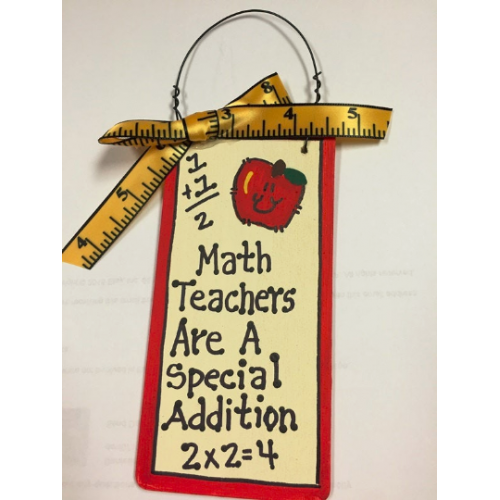 8
3 4 5
5
4
1
+1
2
Math
Teachers
Are A
Special
Addition
2x2=4